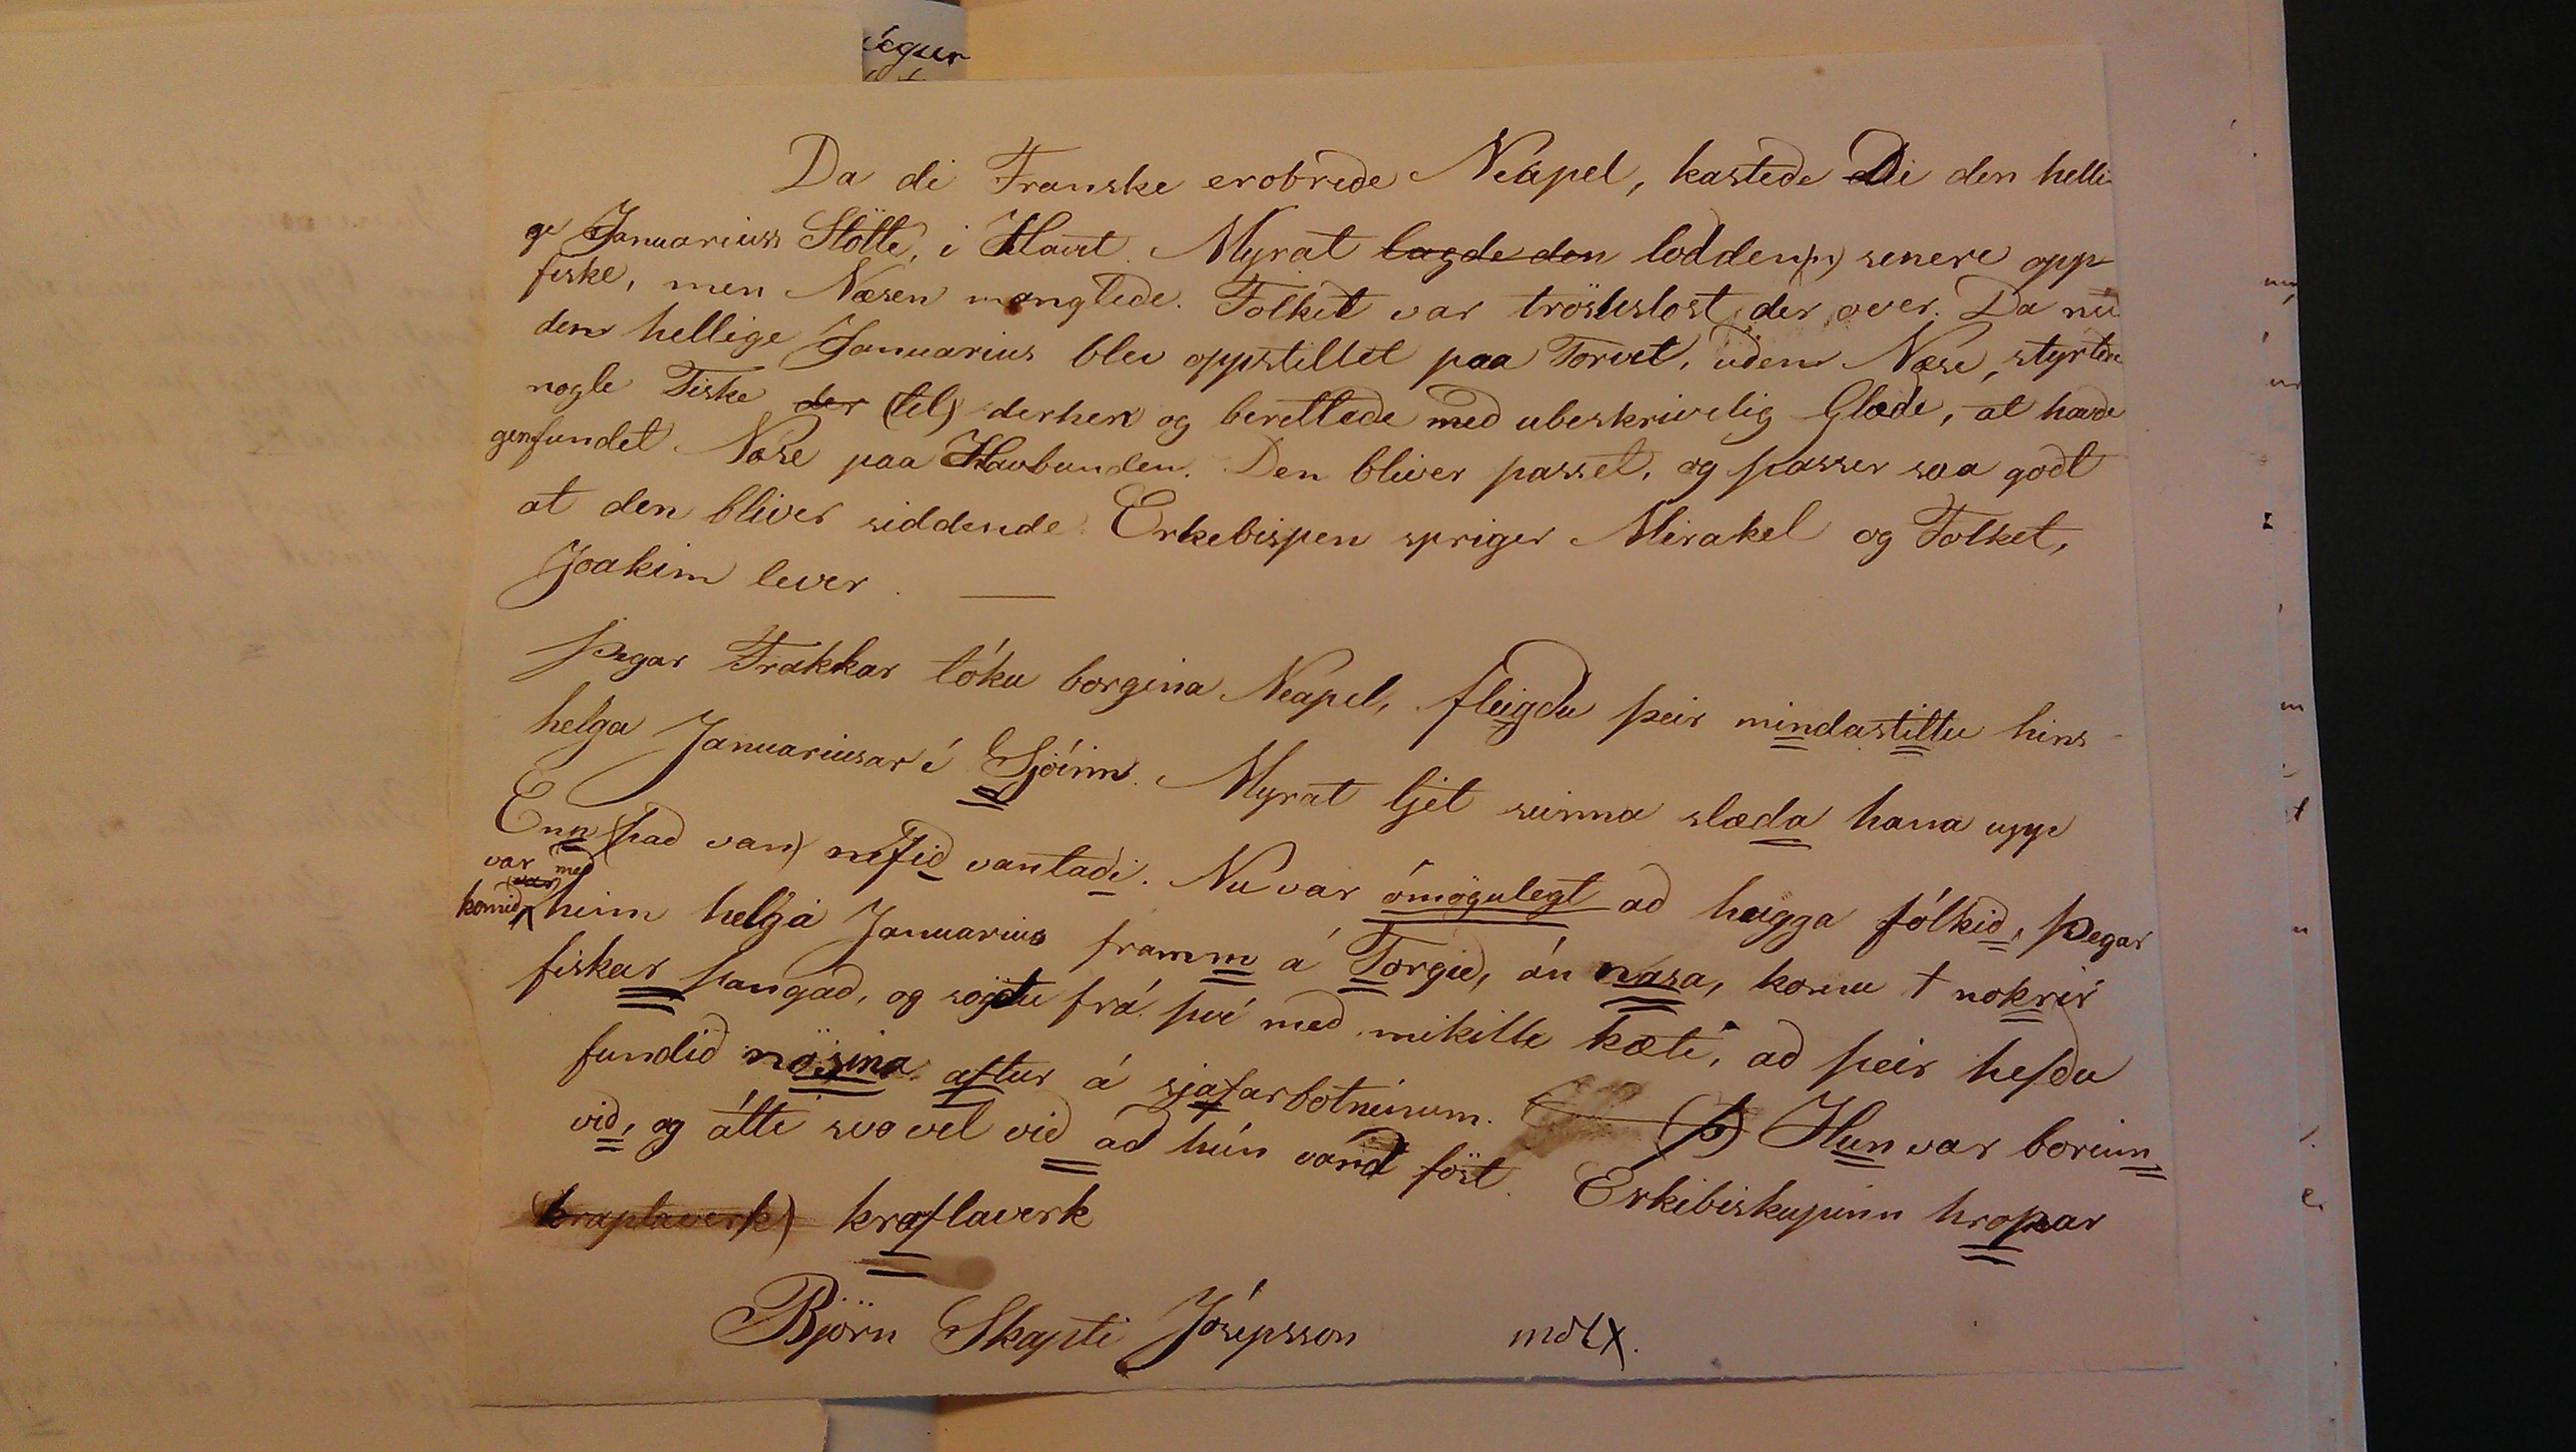 Da di Franske erobrede Neapel, kastede Di den helli-
ge Januariuss Stötte, i Havet. Myrat lagde den lodden(n) senere opp
fiske, men Næsen manglede. Folket var tröstslost der over. Da nú
den hellige Januarius blev oppstillet paa Torvet, uden Næse, styrtede
nogle Fiske der (til) derhen og berettede med ubeskrivelig Glæde, at havde
genfundet Næse paa Havbunden. Den bliver passet, og passer saa godt
at den bliver siddende. Erkebispen spriger Mirakel og Folket,
Joakim lever.
Þegar Frakkar tóku borgina Neapel, fleigdu þeir mindastittu hins
helga Januariusar í Sjóinn. Myrat ljet seinna slæda hana upp
Enn (það var) nefið vantaði. Nu var ómögulegt að hugga fólkið, Þegar
var með
komið hinn helga Januarius framm á Torgið, án nasa, komu † nokrir
fiskar þangað, og sögdu frá því með mikille kæti, að þeir hefdu
fundið nösina aftur á sjafarbotninum. (þ) Hun var borinn
við, og átti svo vel við að hún varð föst. Erkibiskupinn hropar
(kraptaverk) kraftaverk
Björn Skapti Jósepsson